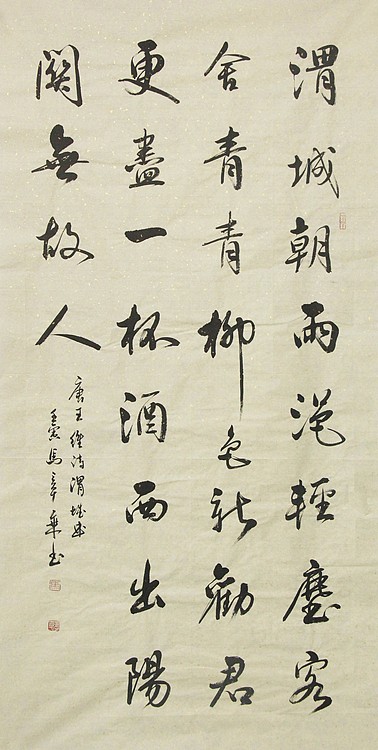 渭城朝雨浥輕塵客
舍青青柳色新勸君
更盡一杯酒西出陽
關無故人
唐王維诗渭城曲
馬章乘书